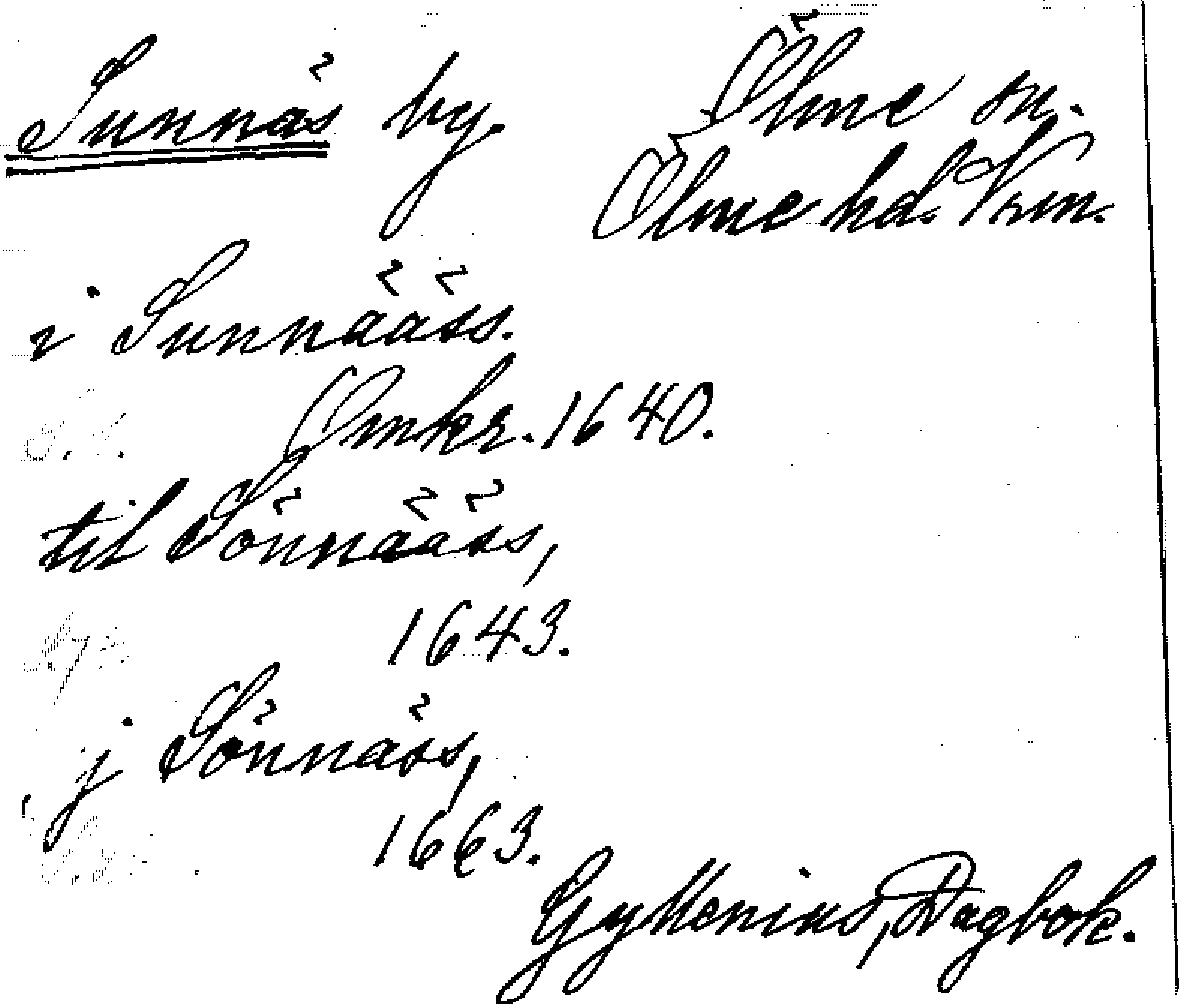 Sunnäs by. Ölme sn.
Ölme hd. Vrm.
i Sunnääss.
Omkr. 1640.
til Sönnääss,
1643.
j Sönnäss,
1663.
Gyllenius, Dagbok.